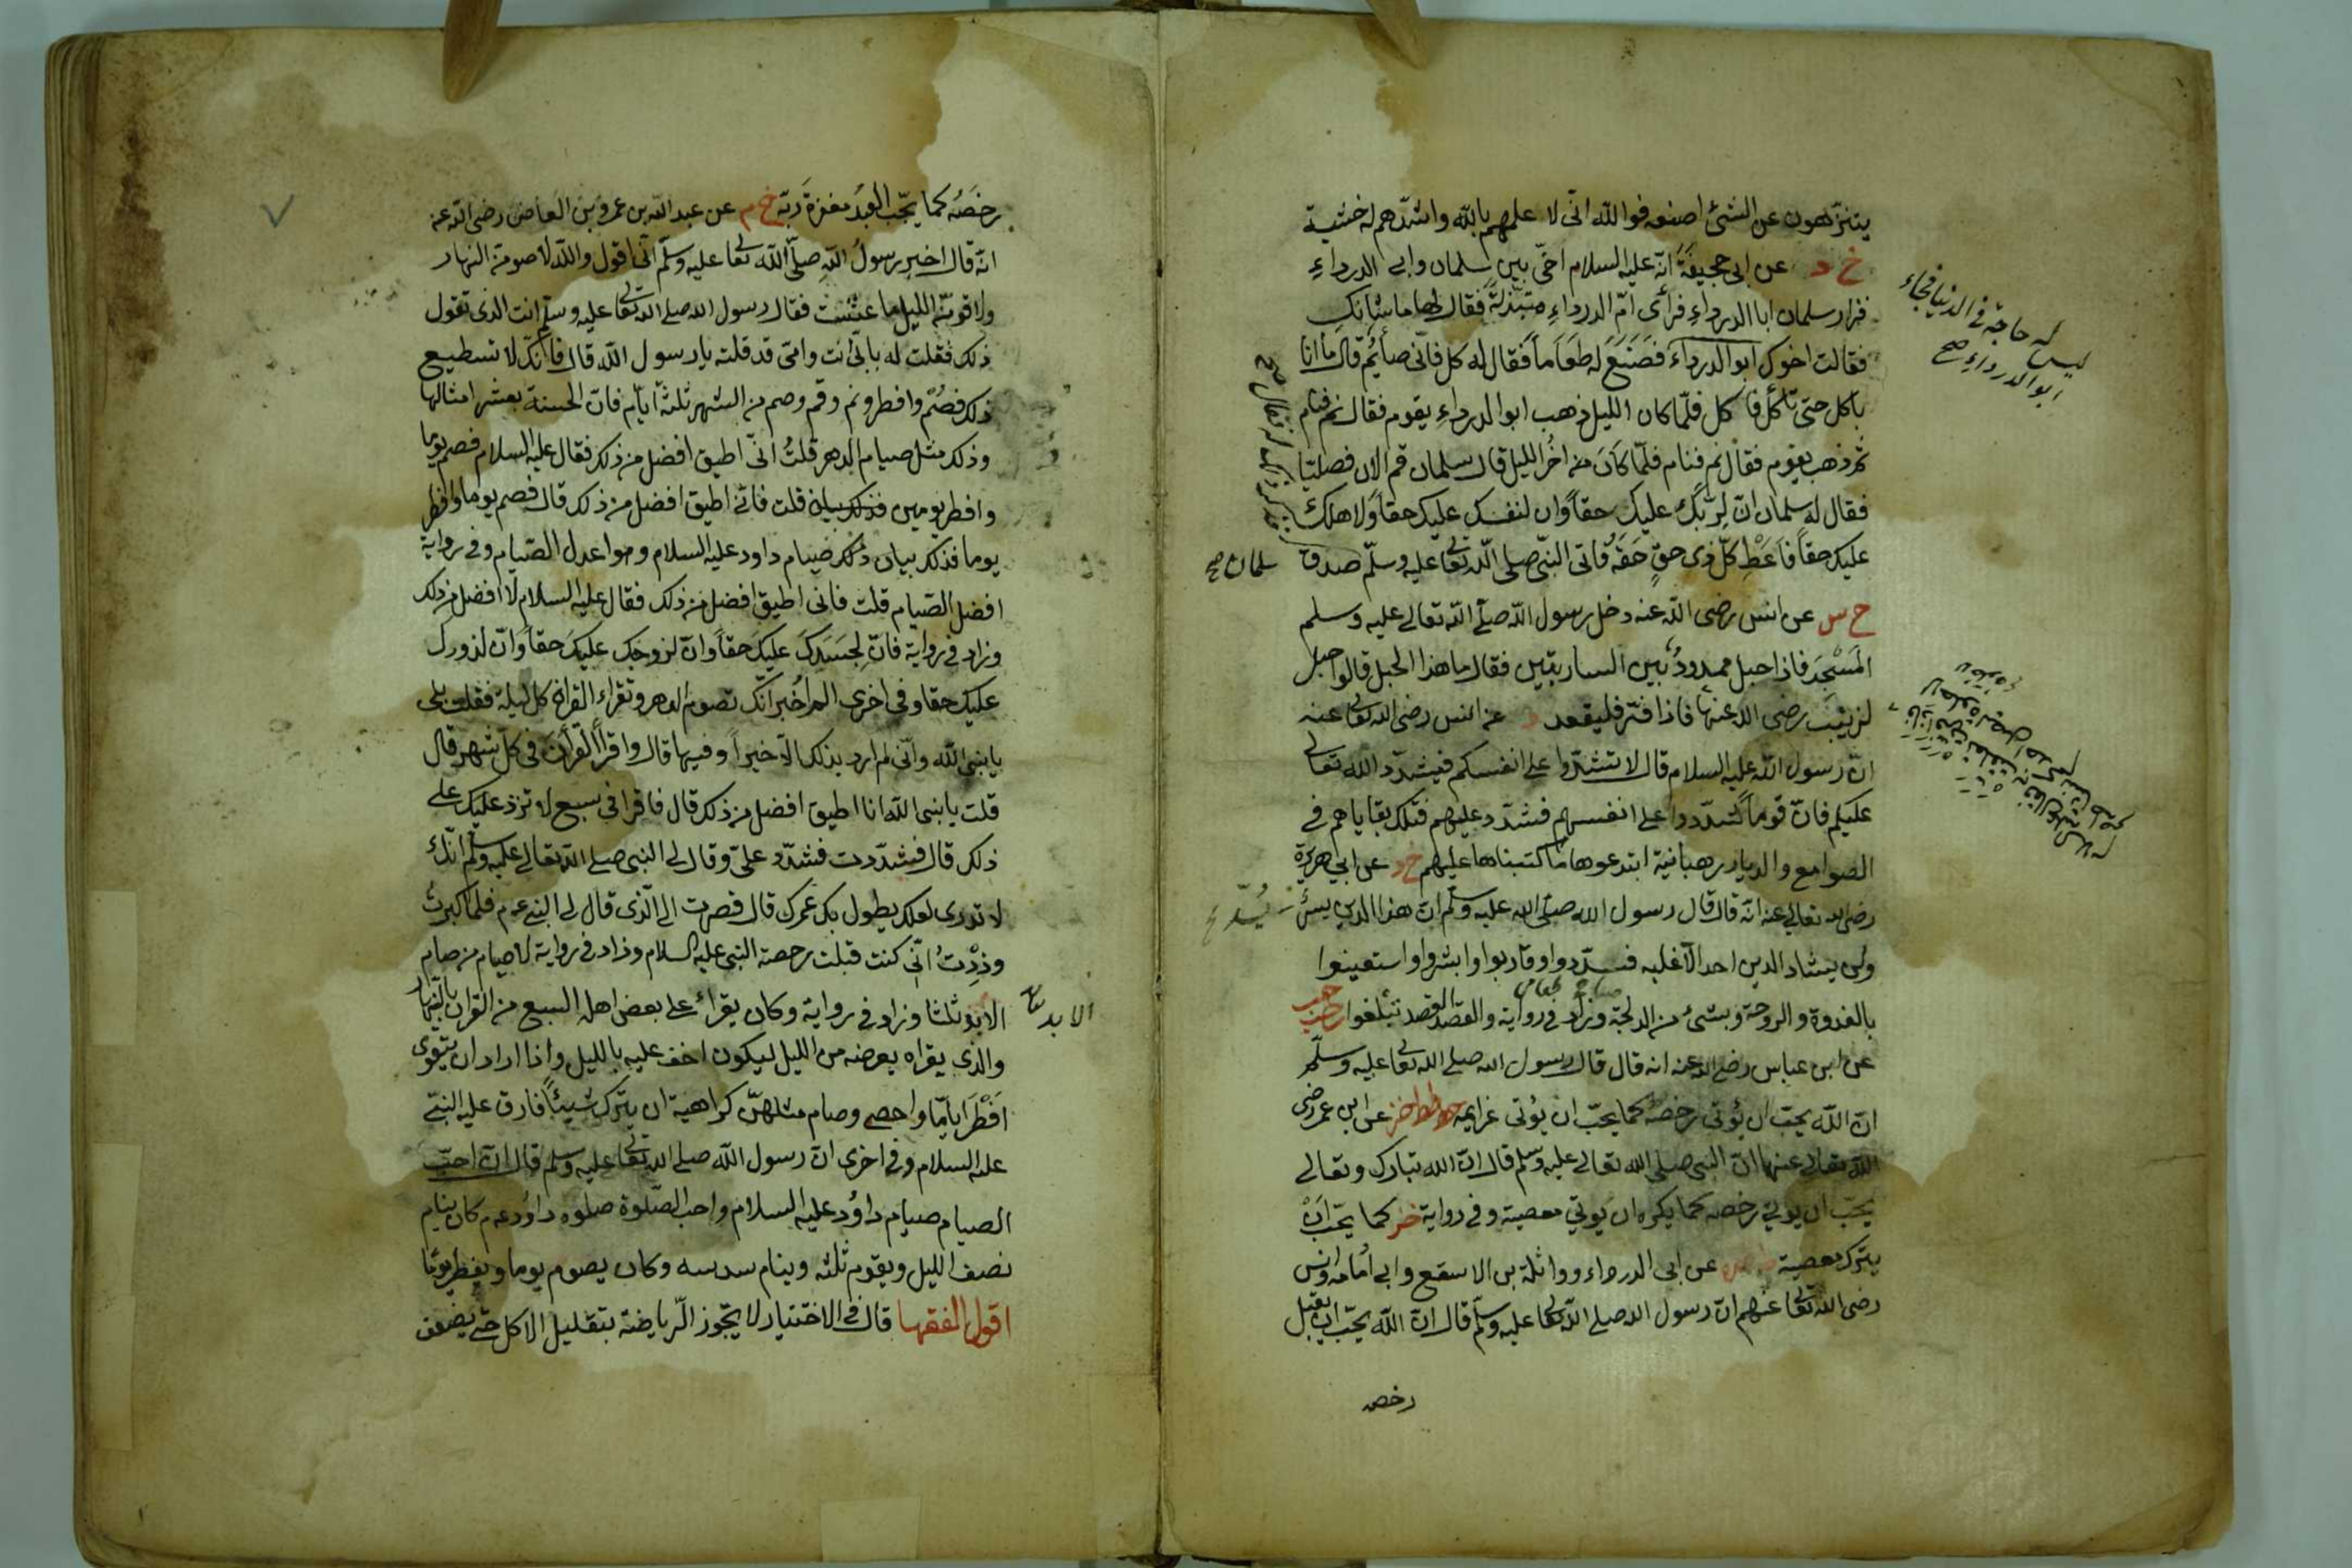 يتنزهون عن الشئ اصنعه فوالله انى لا علمهم بالله واشدهم له خشية
خ د عن ابى جحيفة انه عليه السلام اخى بين سلمان وابى الدرداء
فزار سلمان ابا الدرداء فرأى ام الدرداء متبذلة فقال لها ما شانك
فقالت اخوك ابو الدرداء فصنع له طعاما فقال له كل فانى صائم قال ما انا
باكل حتى تأكل فاكل فلما كان الليل ذهب ابو الدرداء يقوم فقال نم فنام
ثم ذهب يقوم فقال نم فنام فلما كان من اخر الليل قال سلمان قم الان فصليا
فقال له سلمان ان لربك عليك حقا وان لنفسك عليك حقا ولاهلك
عليك حقا فاعط كل ذى حق حقه فاتى النبى صلى الله تعا عليه وسلم صدق
سلمان صح
ليس له حاجة فى الدنيا فجاء
ابو الدرداء صح
خ س عن انس رضى الله عنه دخل رسول الله صلى الله تعالى عليه وسلم
المسجد فاذا حبل ممدود بين الساريتين فقال ما هذا الحبل قالوا حبل
لزينب رضى الله عنها فاذا فتر فليقعد د عن انس رضى الله تعالى عنه
ان رسول الله عليه السلام قال لا تشددوا على انفسكم فيشدد الله تعالى
عليكم فان قوما شددوا على انفسهم فشدد عليهم فتلك بقاياهم فى
الصوامع والديار رهبانية ابتدعوها ما كتبناها عليهم خ د عن ابي هريرة
رضى الله تعالى عنه انه قال قال رسول الله صلى الله عليه وسلم ان هذا الدين يسر
ولن يشاد الدين احد الا غلبه فسددوا وقاربوا وابشروا واستعينوا
بالغدوة والروحة وبشئ من الدلجة وزاد فى رواية والقصد القصد تبلغوا
عن ابن عباس رضى الله عنه انه قال قال رسول الله صلى الله تعا عليه وسلم
ان الله يحب ان يؤتى رخصه كما يحب ان يؤتى عزايمه عن ابن عمر رضى
الله تعالى عنهما ان النبى صلى الله تعالى عليه وسلم قال ان الله تبارك وتعالى
يحب ان يؤتي رخصه كما يكره ان يؤتي معصية وفي رواية خز كما يحب ان
يترك معصية عن ابى الدرداء وواثلة بن الاسقع وابى امامه وانس
رضى الله تعا عنهم ان رسول الله صلى الله تعا عليه وسلم قال ان الله يحب ان يقبل
رخصه
رخصه كما يحب العبد مغفرة ربه خ م عن عبد الله بن عمرو بن العاص رضى الله عنه
انه قال اخبر رسول الله صلى الله تعا عليه وسلم انى اقول والله لاصومن النهار
ولاقومن الليل ما عشت فقال رسول الله صلى الله تعا عليه وسلم انت الذى تقول
ذلك فقلت له بابى انت وامى قد قلته يا رسول الله قال فانك لا تسطيع
ذلك فصم وافطر ونم وقم وصم من الشهر ثلثة ايام فان الحسنة بعشر امثالها
وذلك مثل صيام الدهر قلت انى اطيق افضل من ذلك فقال عليه السلام فصم يوما
وافطر يومين قلت فانى اطيق افضل من ذلك قال فصم يوما وافطر
يوما فذلك صيام داود عليه السلام وهو اعدل الصيام وفى رواية
افضل الصيام قلت فانى اطيق افضل من ذلك فقال عليه السلام لا افضل من ذلك
وزاد فى رواية فان لجسدك عليك حقا وان لزوجك عليك حقا وان لزورك
عليك حقا وفى اخرى الم اخبر انك تصوم الدهر وتقراء القران كل ليلة فقلت بلى
يا نبى الله وانى لم ارد بذلك الا خيرا وفيها قال واقرأ القرأن فى كل شهر قال
قلت يا نبى الله انا اطيق افضل من ذلك قال فاقرا فى سبع لا تزد عليك على
ذلك قال فشددت فشدد على وقال لى النبى صلى الله تعالى عليه وسلم انك
لا تدرى لعلك يطول بك عمرك قال فصرت الى الذى قال لى النبى عم فلما كبرت
وددت انى كنت قبلت رخصة النبى عليه السلام وزاد فى رواية لا صيام من صام
الابد ثلثا وزاد فى رواية وكان يقراء على بعض اهله السبع من القران بالنهار
الابد
والذى يقراه يعرضه من الليل ليكون اخف عليه بالليل واذا اراد ان يتقوى
افطر اياما واحصى وصام مثلهن كراهية ان يترك شيئا فارق عليه النبى
عليه السلام وفى اخرى ان رسول الله صلى الله تعا عليه وسلم قال ان احب
الصيام صيام داود عليه السلام واحب الصلوة صلوة داود عم كان ينام
نصف الليل ويقوم ثلثه وينام سدسه وكان يصوم يوما ويفطر يوما
اقول الفقها قال فى الاختيار لا يجوز الرياضة بتقليل الاكل حتى يضعف